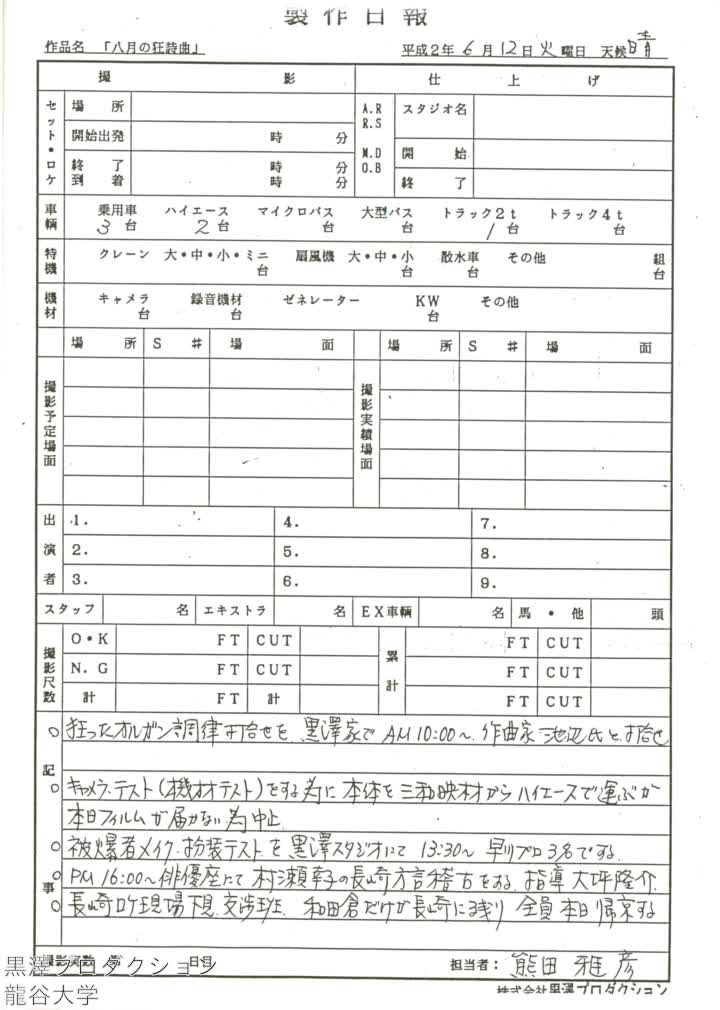 製作日報
作品名 「八月の狂詩曲」 平成2年 6月 12日 火曜日 天候 晴
撮 影 仕 上 げ
セット・ロケ 場 所 A.R R.S スタジオ名
開始出発 時 分 M.D O.B 開 始
終 了 時 分
到 着 時 分 終 了
車輌 乗用車 ハイエース マイクロバス 大型バス トラック2t トラック4t
3台 2台 台 台 1台 台
特機 クレーン 大・中・小・ミニ 扇風機 大・中・小 散水車 その他 組
台 台 台 台
機材 キャメラ 録音機材 ゼネレーター KW その他
台 台 台
場 所 S # 場 面 場 所 S # 場 面
撮影予定場面 撮影実績場面
出演者 1. 4. 7.
2. 5. 8.
3. 6. 9.
スタッフ 名 エキストラ 名 EX車輌 名 馬・他 頭
撮影尺数 O・K FT CUT 累計 FT CUT
N.G FT CUT FT CUT
計 FT 計 FT CUT
記事
○狂ったオルガン調律打合せを 黒澤家で AM10:00〜. 作曲家 池辺氏と打合せ
○キャメラ.テスト(機材テスト)をする為に 本体を三和映材からハイエースで運ぶが
本日フィルムが届かない為中止.
○被爆者メイク.扮装テストを黒澤スタジオにて 13:30〜 早川プロ3名でする.
○PM 16:00〜俳優座にて 村瀬幸子の長崎方言稽古をする. 指導 大坪隆介.
○長崎ロケ現場下見.交渉班. 和田倉だけが長崎に残り 全員本日帰京する
撮影実数 第 日目 担当者: 熊田 雅彦
株式会社黒澤プロダクション
黒澤プロダクション
龍谷大学